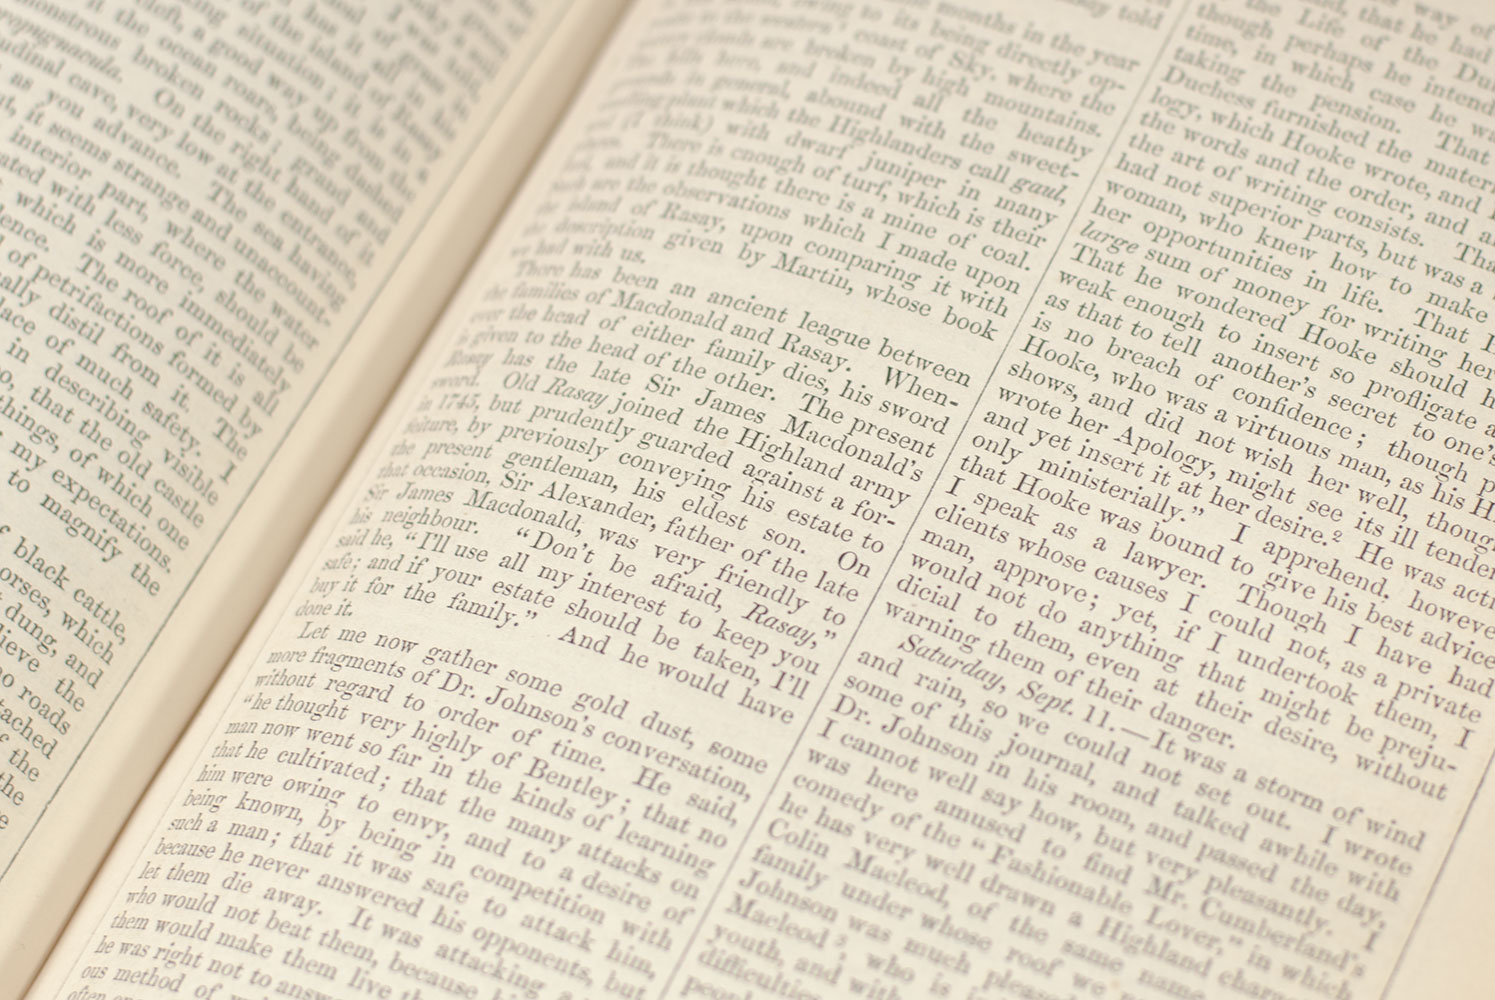 I was
grass in
it all in
has it of Rasay
of the island of
situation; it is in a
a good way up from the
the ocean roars, being dashed
monstrous broken rocks; grand and
opugnacula. On the right hand of it
udinal cave, very low at the entrance,
as you advance. The sea having
it seems strange and unaccount-
interior part, where the water
ated with less force, should be
which is more immediately
ence. The roof of it is all
of petrifactions formed by
ally distil from it. The
lace of much safety. I
in describing visible
that the old castle
things, of which one
my expectations.
to magnify the
black cattle,
orses, which
dung, and
lieve the
no roads
tached
the
the
months in the year
owing to its being directly op-
coast of Sky, where the
clouds are broken by high mountains.
The hills here, and indeed all the heathy
grounds in general, abound with the sweet-
smelling plant which the Highlanders call gaul,
and (I think) with dwarf juniper in many
places. There is enough of turf, which is their
fuel, and it is thought there is a mine of coal.
Such are the observations which I made upon
the island of Rasay, upon comparing it with
the description given by Martin, whose book
we had with us.
There has been an ancient league between
the families of Macdonald and Rasay. When-
ever the head of either family dies, his sword
is given to the head of the other. The present
Rasay has the late Sir James Macdonald's
sword. Old Rasay joined the Highland army
in 1745, but prudently guarded against a for-
feiture, by previously conveying his estate to
the present gentleman, his eldest son. On
that occasion, Sir Alexander, father of the late
Sir James Macdonald, was very friendly to
his neighbour. "Don't be afraid, Rasay,"
said he, "I'll use all my interest to keep you
safe; and if your estate should be taken, I'll
buy it for the family." And he would have
done it.
Let me now gather some gold dust, some
more fragments of Dr. Johnson's conversation,
without regard to order of time. He said,
"he thought very highly of Bentley; that no
man now went so far in the kinds of learning
that he cultivated; that the many attacks on
him were owing to envy, and to a desire of
being known, by being in competition with
such a man; that it was safe to attack him,
because he never answered his opponents, but
let them die away. It was attacking a
who would not beat them, because
them would make them live the
he was right not to answer
ous method of
often
though perhaps he intended
time, in which case he
taking the pension. That
Duchess furnished the mater
logy, which Hooke wrote, and
the words and the order, and
the art of writing consists. Tha
had not superior parts, but was a
woman, who knew how to make
her opportunities in life. That
large sum of money for writing her
That he wondered Hooke should h
weak enough to insert so profligate a
as that to tell another's secret to one's
is no breach of confidence; though p
Hooke, who was a virtuous man, as his Hi
shows, and did not wish her well, though
wrote her Apology, might see its ill tenden
and yet insert it at her desire.² He was acti
only ministerially." I apprehend, howeve
that Hooke was bound to give his best advice
I speak as a lawyer. Though I have had
clients whose causes I could not, as a private
man, approve; yet, if I undertook them, I
would not do anything that might be preju-
dicial to them, even at their desire, without
warning them of their danger.
Saturday, Sept. 11.—It was a storm of wind
and rain, so we could not set out. I wrote
some of this journal, and talked awhile with
Dr. Johnson in his room, and passed the day,
I cannot well say how, but very pleasantly. I
was here amused to find Mr. Cumberland's
comedy of the "Fashionable Lover," in which
he has very well drawn a Highland charac
Colin Macleod, of the same name
family under whose roof we
Johnson was much pleased
Macleod, who is
youth, and with
difficulties
people